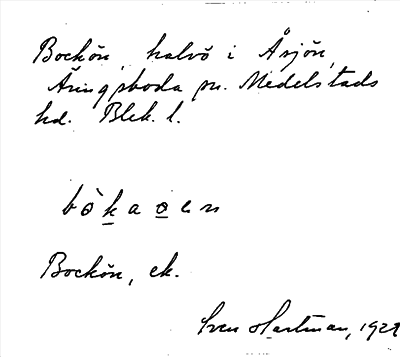 Bockön, halvö i Årsjön,
Åringsboda sn. Medelstads
hd. Blek. l.
bòkaɵen
Bockön, ek.
Sven Hartman, 192